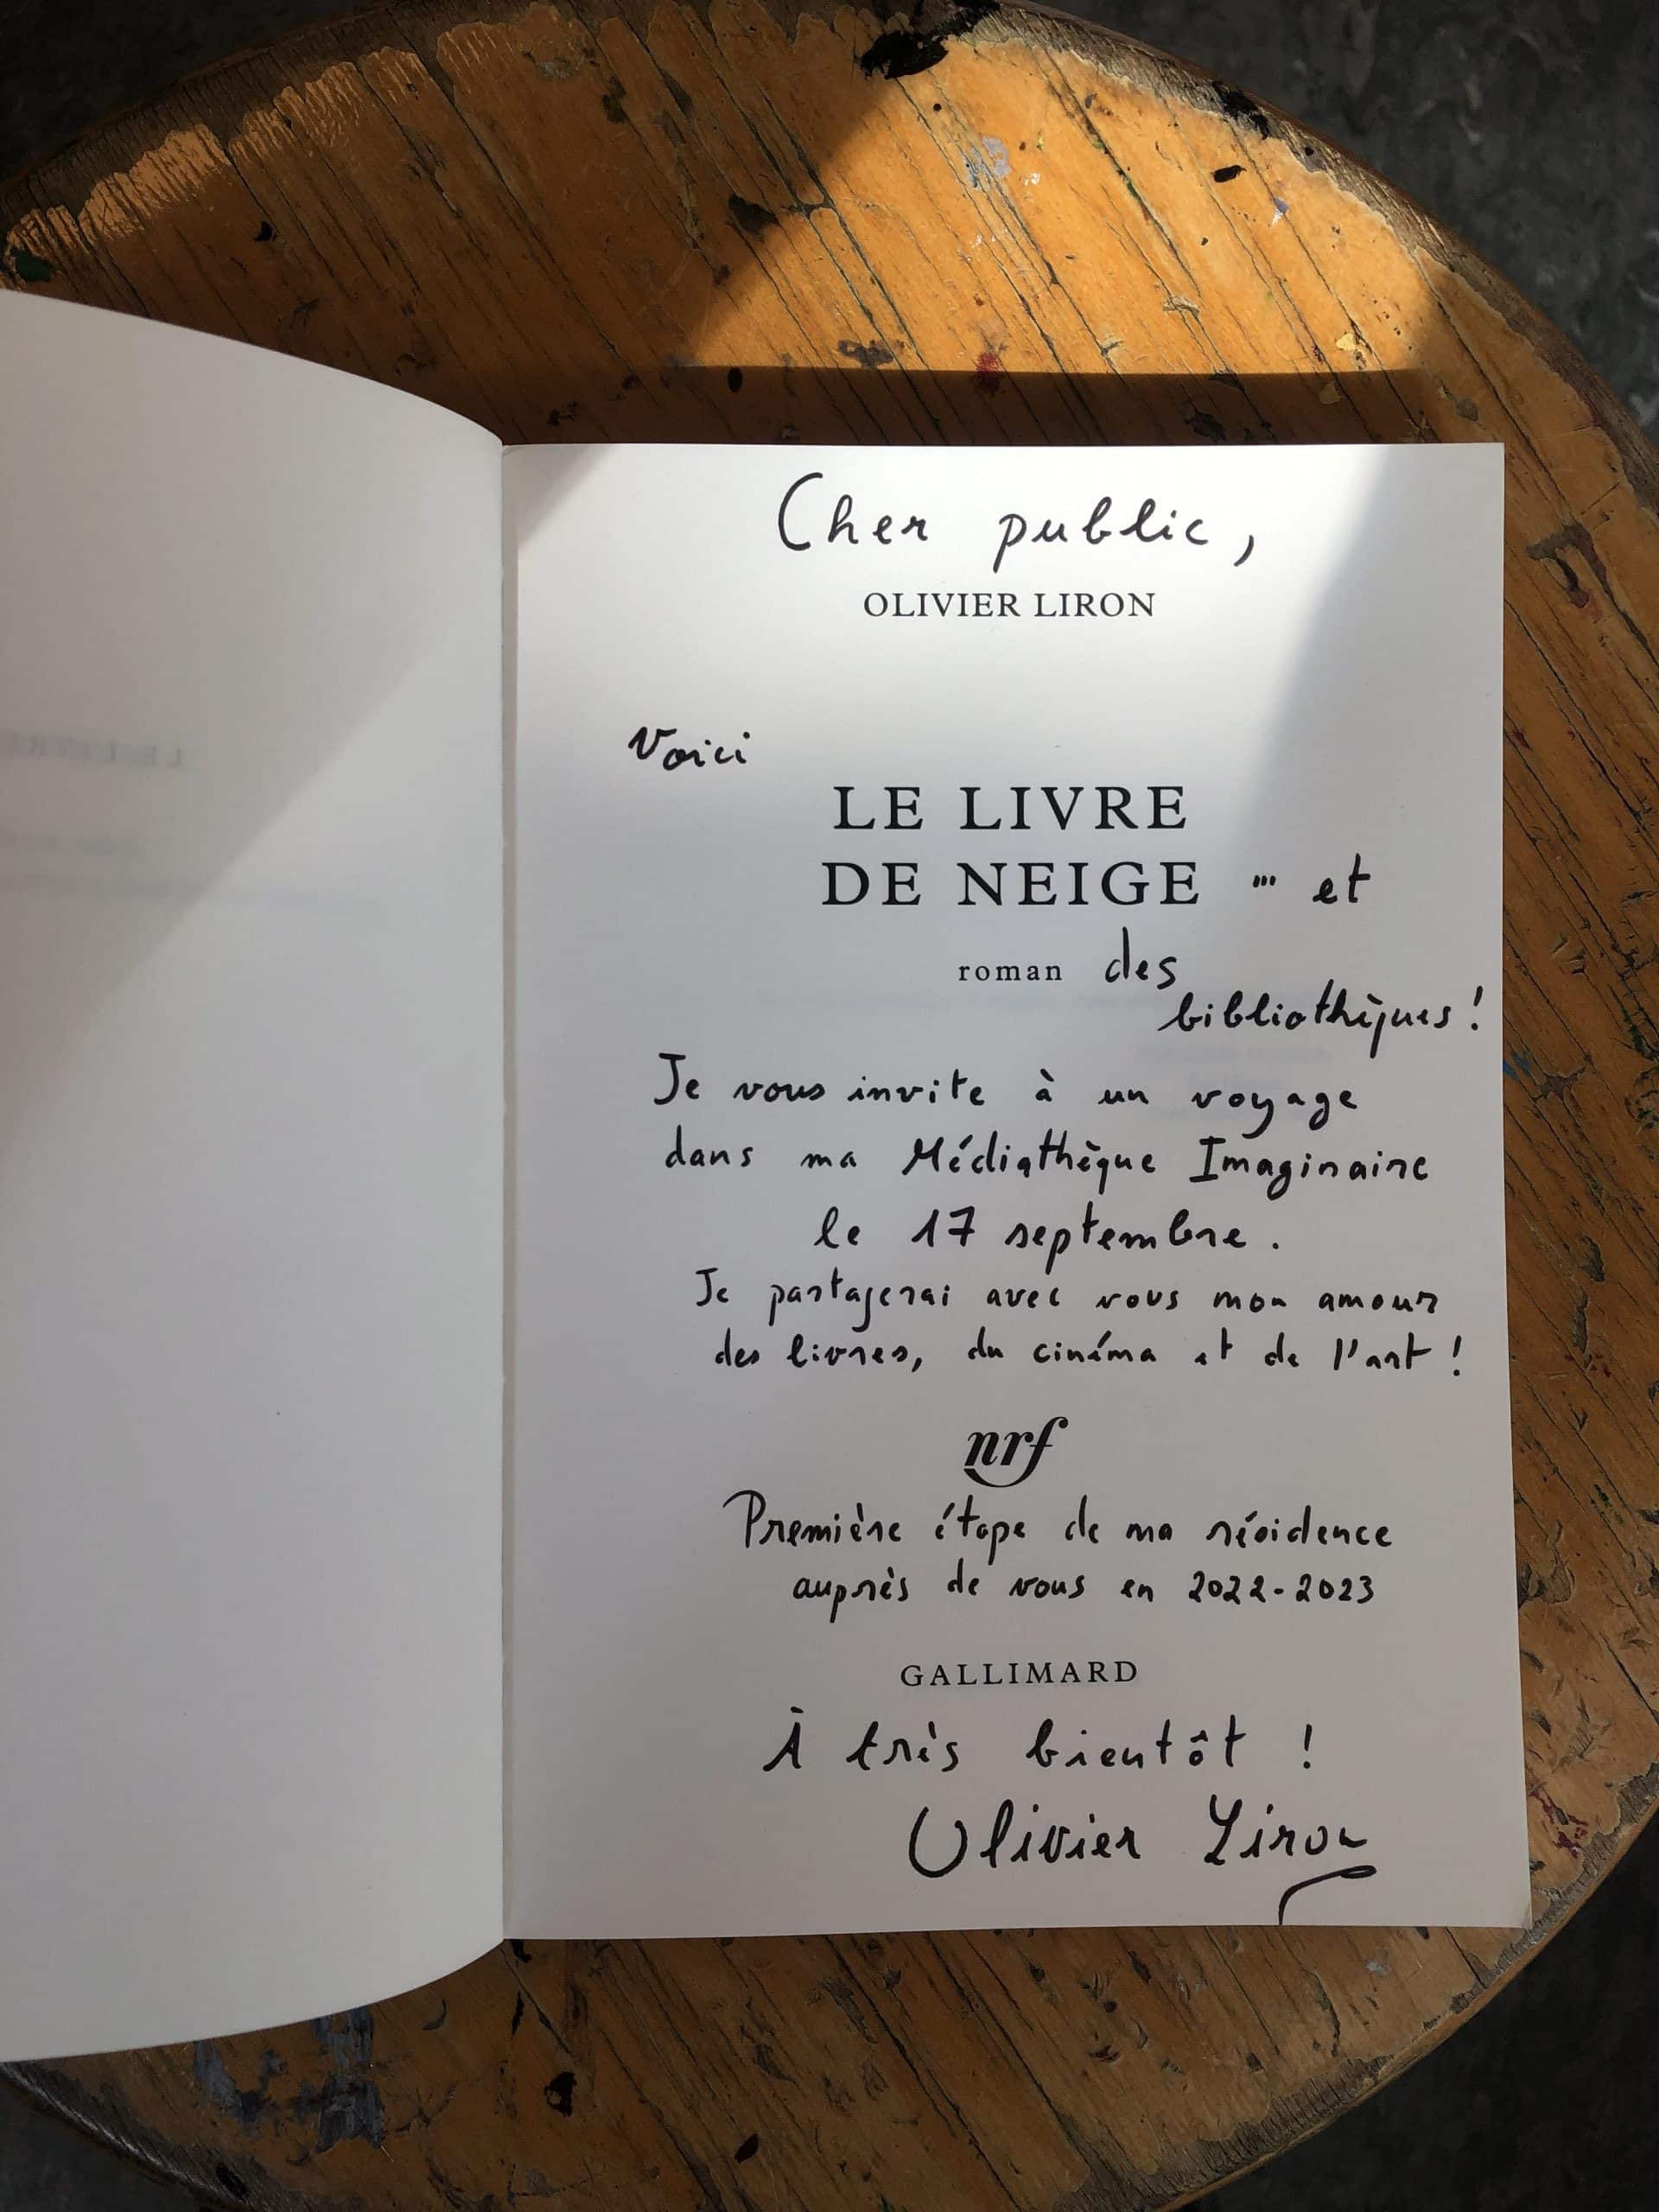 Cher public,
OLIVIER LIRON
Voici
LE LIVRE
DE NEIGE ... et
roman des
bibliothèques !
Je vous invite à un voyage
dans ma Médiathèque Imaginaire
le 17 septembre.
Je partagerai avec vous mon amour
des livres, du cinéma et de l'art !
nrf
Première étape de ma résidence
auprès de vous en 2022-2023
GALLIMARD
À très bientôt !
Olivier Liron